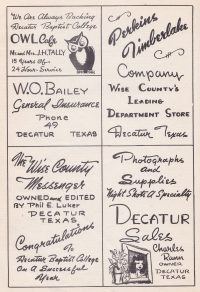 We Are Always Backing
Decatur Baptist College
OWL Cafe
Mr. and Mrs. J.H. TALLY
15 Years Of
24 Hour Service
Perkins
Timberlake
Company
WISE COUNTY'S
LEADING
DEPARTMENT STORE
Decatur Texas
W.O. BAILEY
General Insurance
PHONE
49
DECATUR TEXAS
The WISE COUNTY
MESSENGER
OWNED AND EDITED
BY Phil E. Luker
DECATUR
TEXAS
Congratulations
To
Decatur Baptist College
On A Successful
Year
Photographs
and
Supplies
Night Shots A Specialty
DECATUR
Sales
Charles
Rann
OWNER
DECATUR
TEXAS